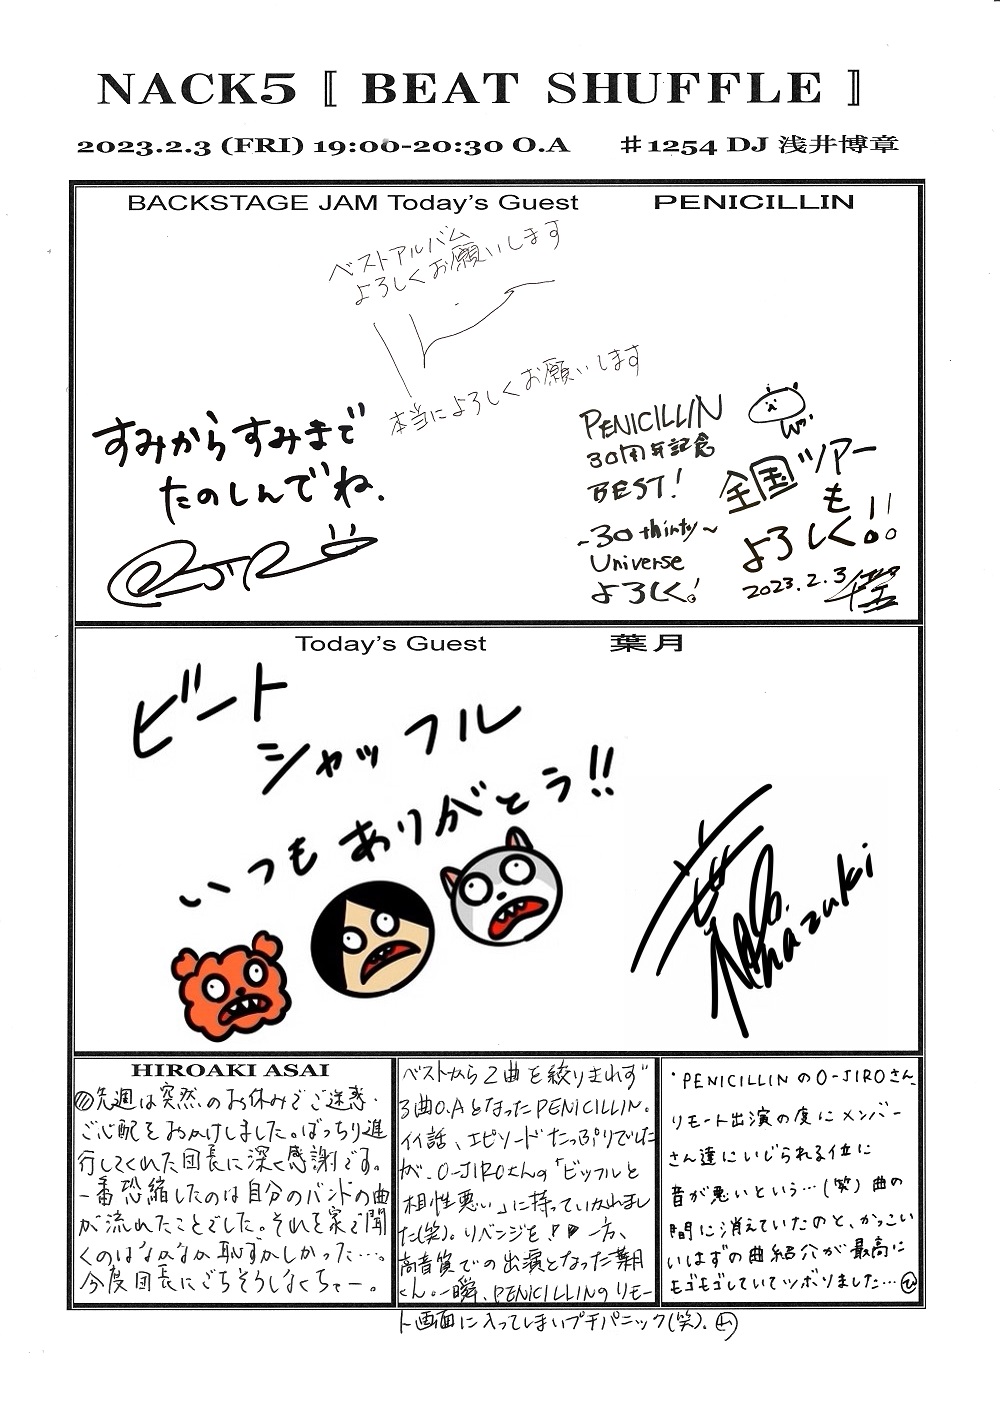 NACK5 〚 BEAT SHUFFLE 〛
2023.2.3 (FRI) 19:00-20:30 O.A ♯1254 DJ 浅井博章
BACKSTAGE JAM Today's Guest PENICILLIN
ベストアルバム
よろしくお願いします
本当によろしくお願いします
すみからすみまで
たのしんでね.
PENICILLIN
30周年記念
BEST!
~30 thirty~
Universe
よろしく!
全国ツアー
も
よろしく!!
2023.2.3
Today's Guest 葉月
ビート
シャッフル
いつもありがとう!!
葉月
Hazuki
HIROAKI ASAI
◎先週は突然のお休みでご迷惑・
ご心配をおかけしました。ばっちり進
行してくれた団長に深く感謝です。
一番恐縮したのは自分のバンドの曲
が流れたことでした。それを家で聞
くのはなかなか恥ずかしかった…。
今度団長にごちそうしなくちゃー。
ベストから2曲を絞りきれず
3曲O.AとなったPENICILLIN。
イイ話、エピソードたっぷりでした
が、O-JIROさんの「ビッフルと
相性悪い」に持っていかれまし
た(笑)。リベンジを!! 一方、
高音質での出演となった葉月
くん。一瞬、PENICILLINのリモー
ト画面に入ってしまいプチパニック(笑)。山
・PENICILLINのO-JIROさん、
リモート出演の度にメンバー
さん達にいじられる位に
音が悪いという…(笑) 曲の
間に消えていたのと、かっこい
いはずの曲紹介が最高に
モゴモゴしていてツボりました…ひ